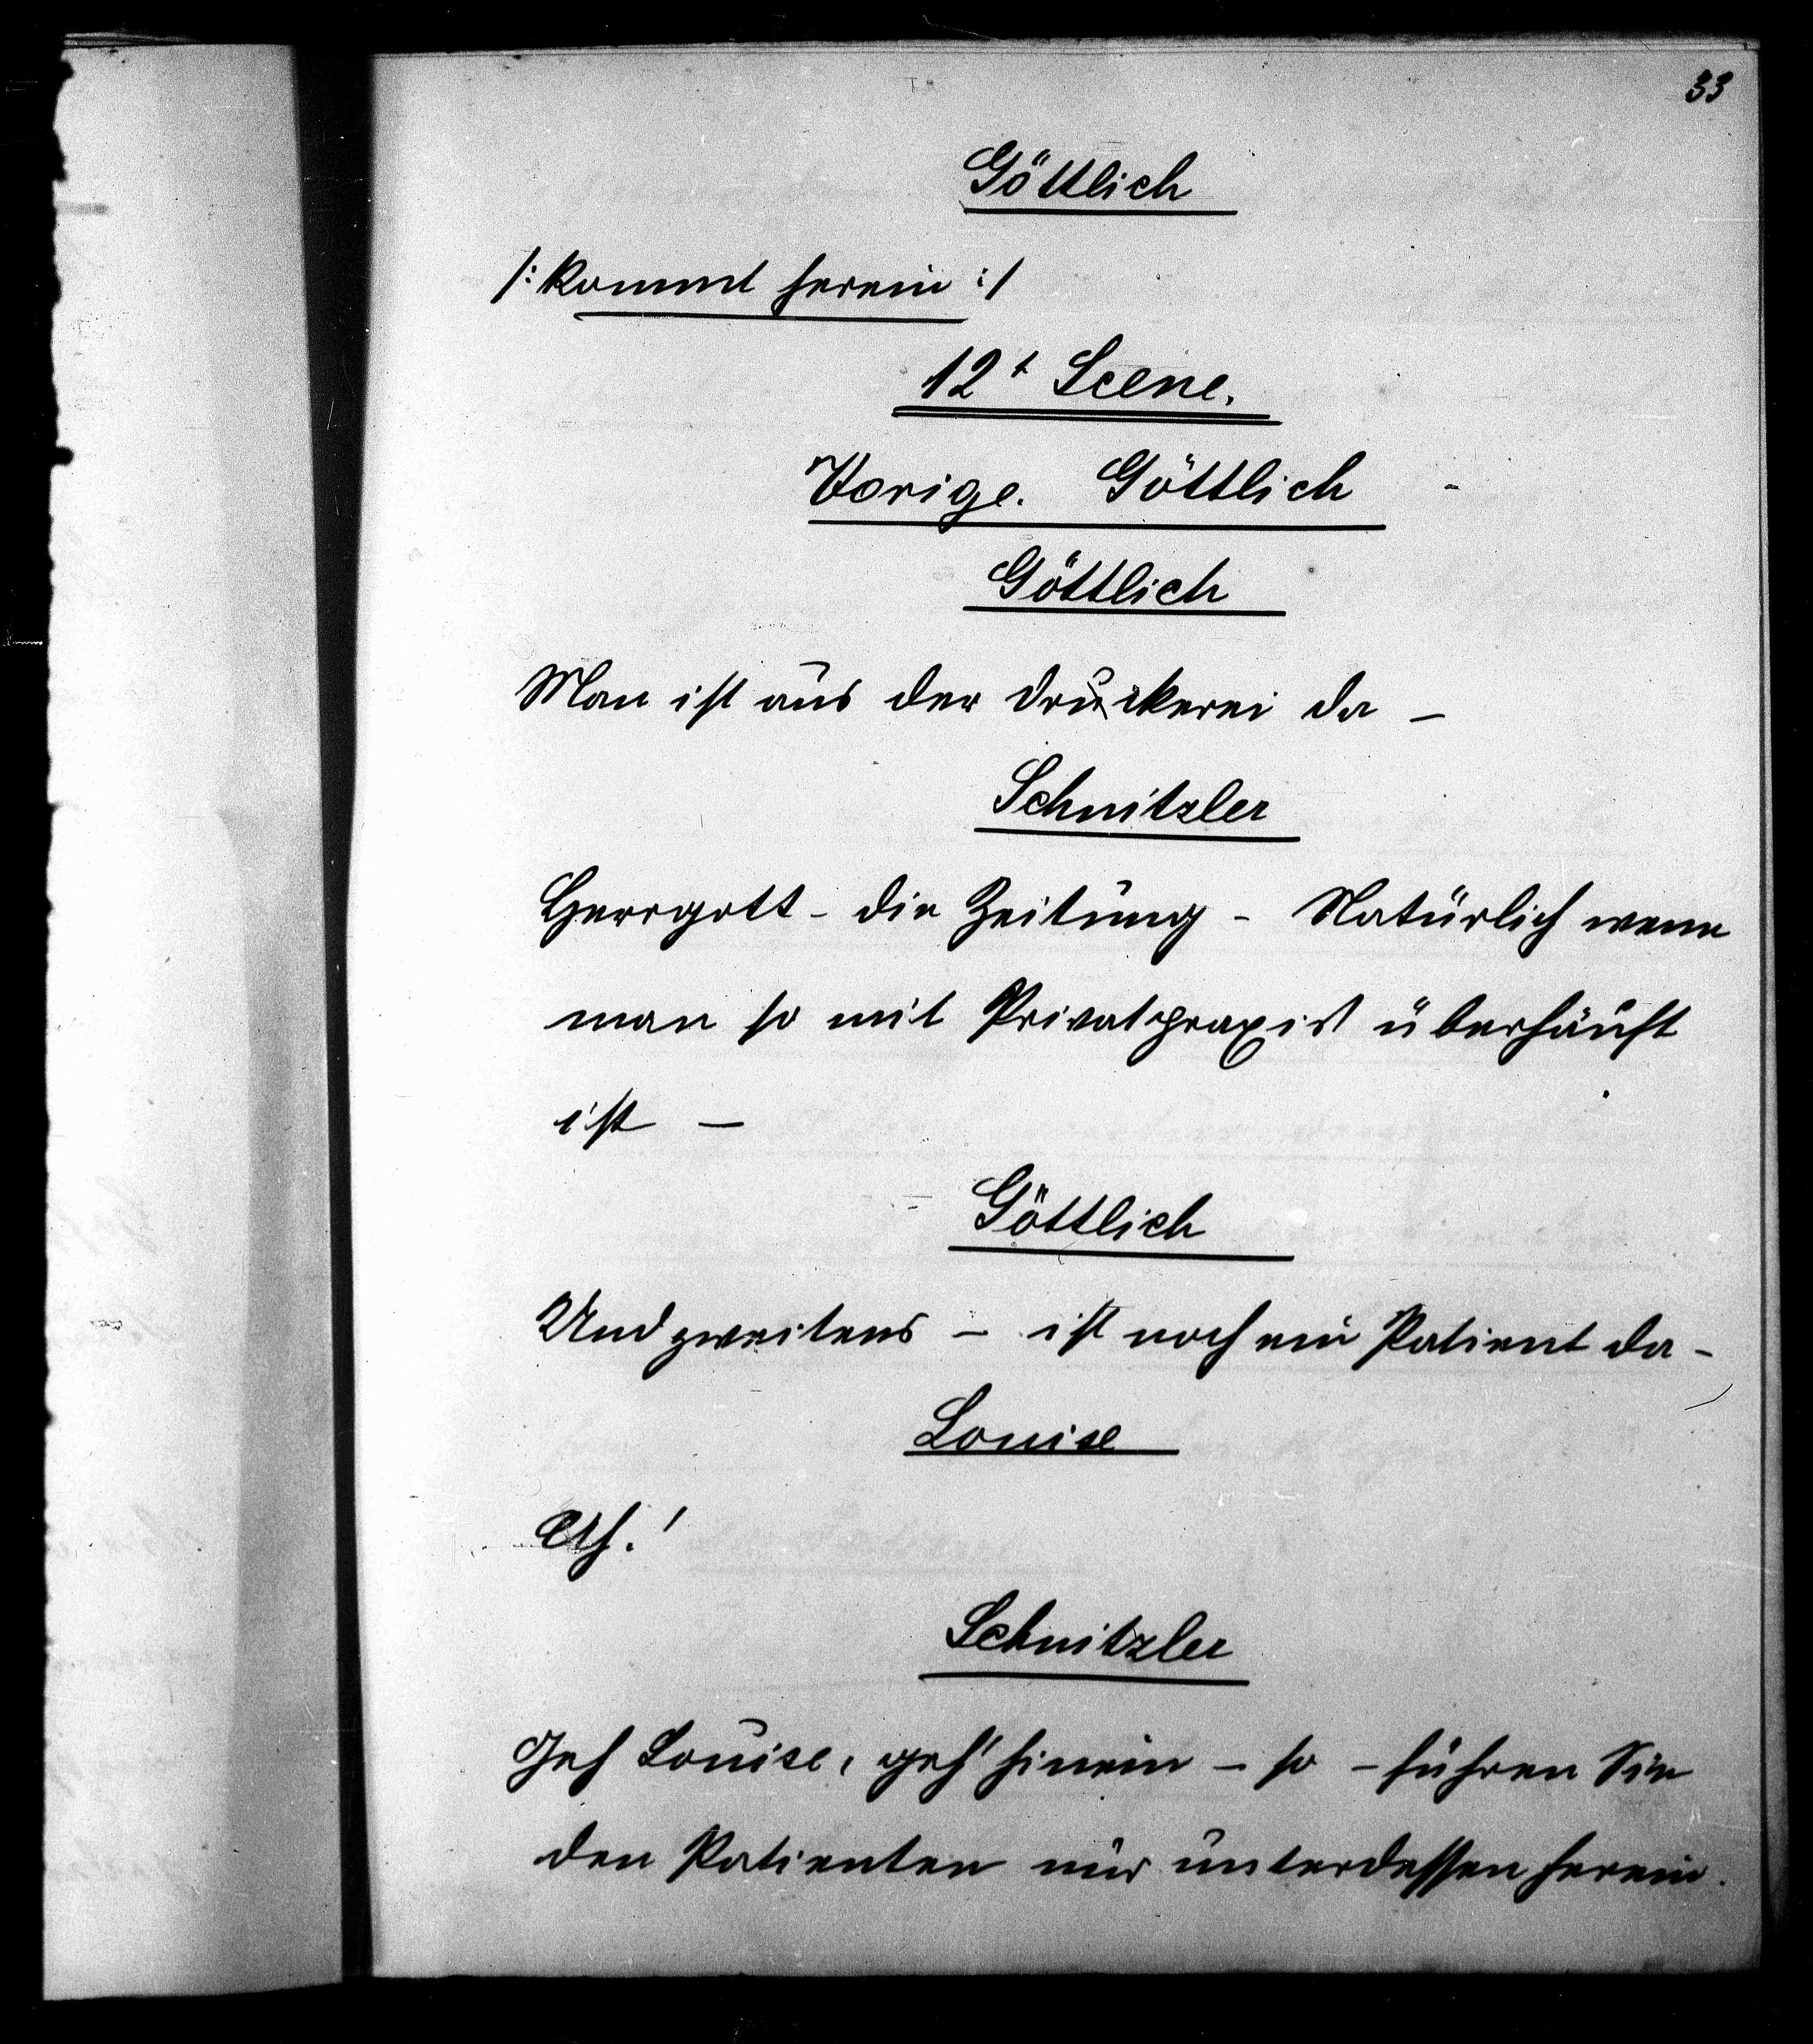 33
Göttlich
/: kommt herein :/
12t Scene.
Vorige. Göttlich
Göttlich
Man ist aus der Druckerei da –
Schnitzler
Herrgott – die Zeitung – Natürlich wenn
man so mit Privatpraxis überhäuft
ist –
Göttlich
Und zweitens – ist noch ein Patient da –
Louise
Ah!
Schnitzler
Geh Louise, geh' hinein – so – führen Sie
den Patienten nur unterdessen herein.